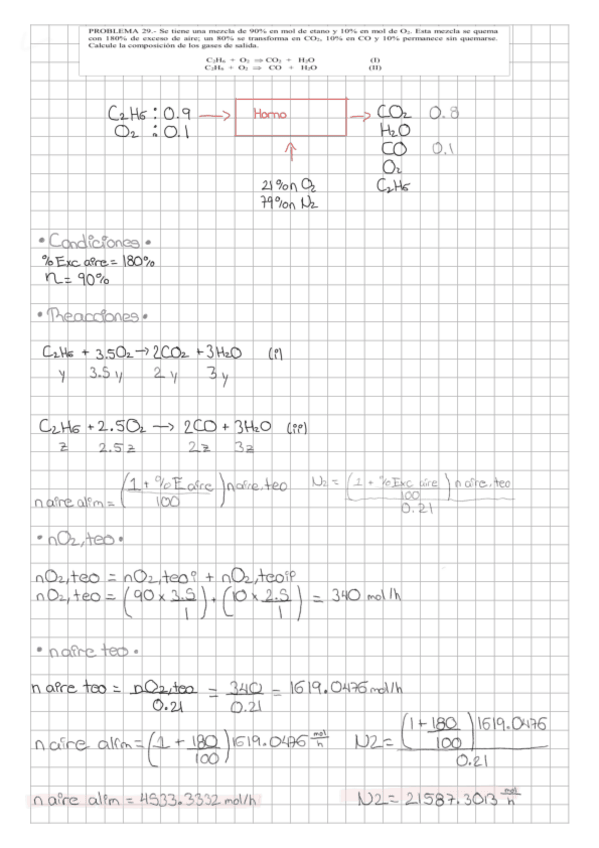 PROBLEMA 29.- Se tiene una mezcla de 90% en mol de etano y 10% en mol de O₂. Esta mezcla se quema
con 180% de exceso de aire; un 80% se transforma en CO₂, 10% en CO y 10% permanece sin quemarse.
Calcule la composición de los gases de salida.
C₂H₆ + O₂ ⇒ CO₂ + H₂O (I)
C₂H₆ + O₂ ⇒ CO + H₂O (II)
C₂H₆ : 0.9 → Horno → CO₂ 0.8
O₂ : 0.1 H₂O
CO 0.1
O₂
21%n O₂ C₂H₆
79%n N₂
• Condiciones •
% Exc aire = 180%
n = 90%
• Reacciones •
C₂H₆ + 3.5O₂ → 2CO₂ + 3H₂O (i)
y 3.5y 2y 3y
C₂H₆ + 2.5O₂ → 2CO + 3H₂O (ii)
z 2.5z 2z 3z
n aire alim = (1 + %E aire / 100) n aire, teo N₂ = (1 + %Exc aire / 100) n aire, teo / 0.21
• nO₂, teo •
nO₂, teo = nO₂, teo i + nO₂, teo ii
nO₂, teo = (90 × 3.5 / 1) + (10 × 2.5 / 1) = 340 mol/h
• n aire teo •
n aire teo = nO₂, teo / 0.21 = 340 / 0.21 = 1619.0476 mol/h
n aire alim = (1 + 180 / 100) 1619.0476 mol/h N₂ = (1 + 180 / 100) 1619.0476 / 0.21
n aire alim = 4533.3332 mol/h N₂ = 21587.3013 mol/h